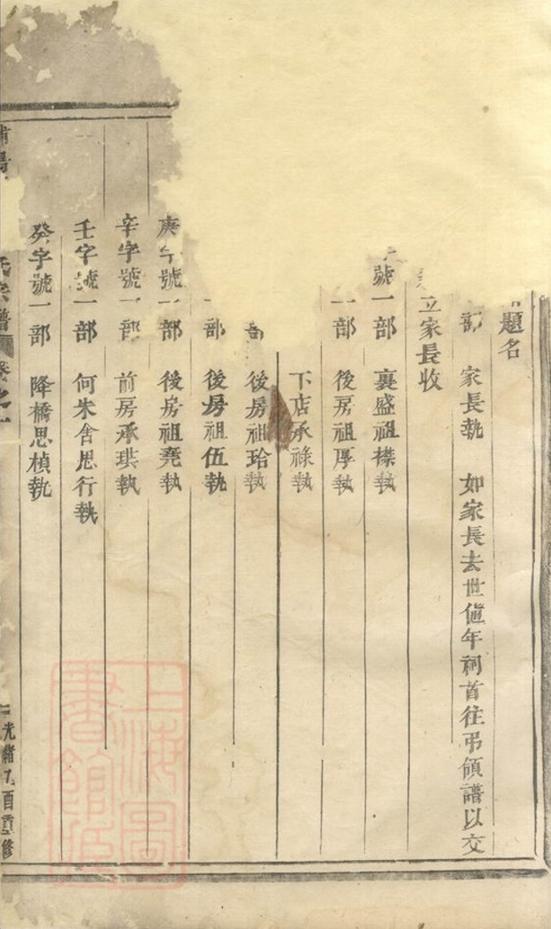 題名
部 家長執 如家長去世值年祠首往弔領譜以交
立家長收
號一部 襄盛祖櫸執
一部 後房祖厚執
下店承祿執
後房祖珆執
部 後房祖伍執
庚字號一部 後房祖堯執
辛字號一部 前房承琪執
壬字號一部 何朱舍思行執
癸字號一部 降橋思楨執
氏宗譜 卷之一 光緒乙酉重修
上海圖書館藏